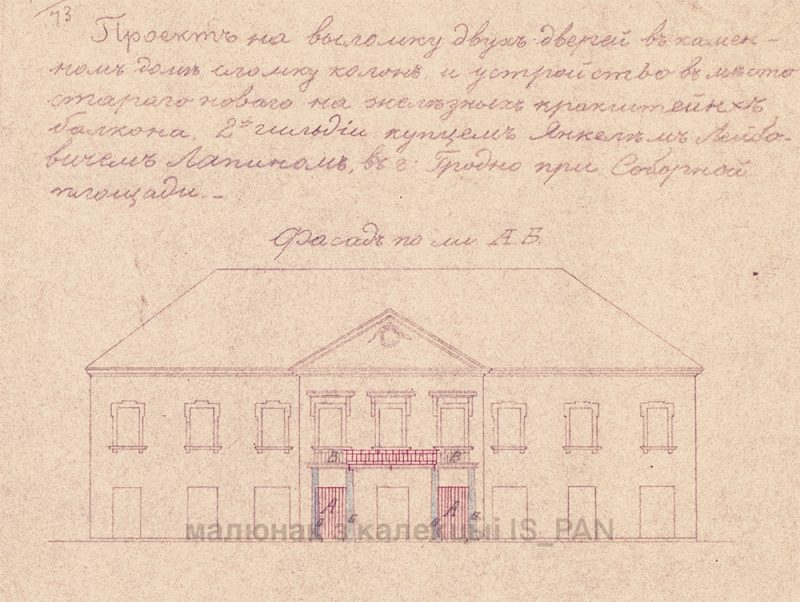 73
Проектъ на выломку двухъ дверей въ камен-
номъ домѣ сломку колонъ и устройство вмѣсто
стараго новаго на желѣзныхъ кранштейнхъ
балкона, 2й гильдіи купцемъ Янкелѣмъ Лейбо-
вичемъ Лапиномъ, въ г. Гродно при Соборной
площади.
Фасадъ по ли. А.Б.
В В
А А
Б Б
малюнак з калекцыі IS_PAN